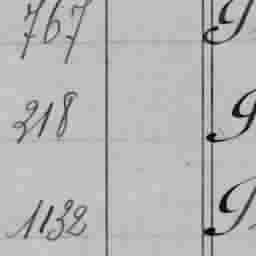 767
218
1132